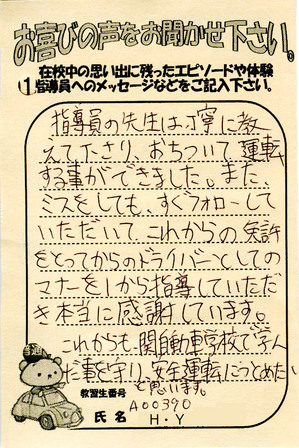 お喜びの声をお聞かせ下さい。
在校中の思い出に残ったエピソードや体験
①指導員へのメッセージなどをご記入下さい。
指導員の先生は丁寧に教
えて下さり、おちついて運転
する事ができました。また、
ミスをしても、すぐフォローして
いただいて これからの免許
をとってからのドライバーとしての
マナーを1から指導していただ
き本当に感謝しています。
これからも、関自動車学校で学ん
だ事を守り、安全運転につとめたい
と思います。
普通
教習生番号 A00390
氏名 H・Y